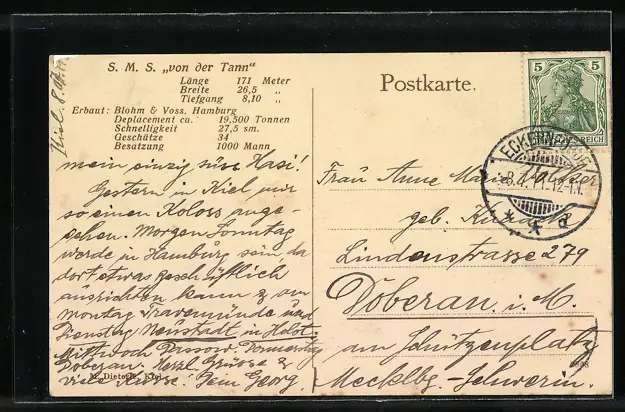 S. M. S. „von der Tann“
Länge 171 Meter
Breite 26,5 „
Tiefgang 8,10 „
Erbaut: Blohm & Voss, Hamburg
Deplacement ca. 19,500 Tonnen
Schnelligkeit 27,5 sm.
Geschütze 34
Besatzung 1000 Mann
Kiel. 8.
mein einzig süss Hasi!
Gestern in Kiel nur
so einen Koloss ange-
sehen. Morgen Sonntag
werde in Hamburg sein, da
dort etwas geschäftlich
ausrichten kann & am
Montag Travemünde und
Dienstag Neustadt in Holst.
Mittwoch Donnerstag
Doberan. Herzl. Grüsse &
viele Küsse. Dein Georg.
M. Dieterle, Kiel
Postkarte.
5 5
DEUTSCHES REICH
ECKERNFÖRDE
8.4.11. 12-1N.
* * a
Frau Anne Marie
geb.
Lindenstrasse 279
Doberan i. M.
am Schützenplatz
Mecklbg.-Schwerin.